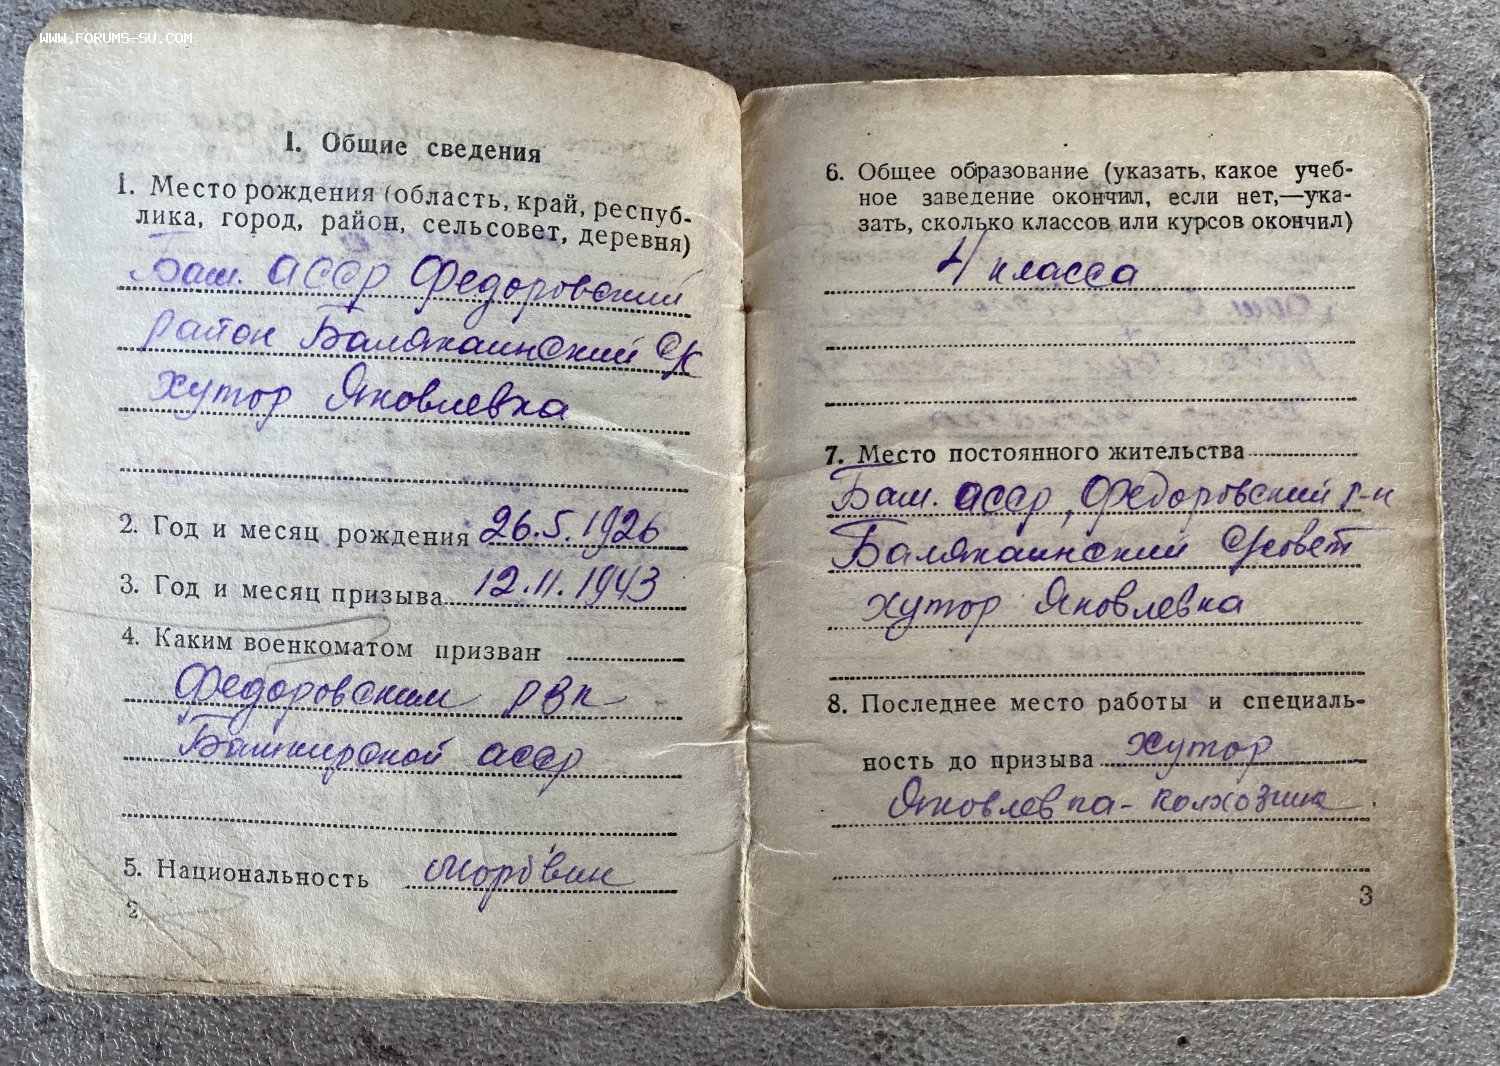 WWW.FORUMS-SU.COM
I. Общие сведения
1. Место рождения (область, край, респуб-
лика, город, район, сельсовет, деревня)
Баш. АССР Федоровский
район Балякаинский с/с
хутор Яковлевка
2. Год и месяц рождения 26.5.1926
3. Год и месяц призыва 12.11.1943
4. Каким военкоматом призван
Федоровским РВК
Башкирской АССР
5. Национальность Мордвин
2
6. Общее образование (указать, какое учеб-
ное заведение окончил, если нет,—ука-
зать, сколько классов или курсов окончил)
4 класса
7. Место постоянного жительства
Баш. АССР, Федоровский р-н
Балякаинский с/совет
хутор Яковлевка
8. Последнее место работы и специаль-
ность до призыва хутор
Яковлевка - колхозник
3